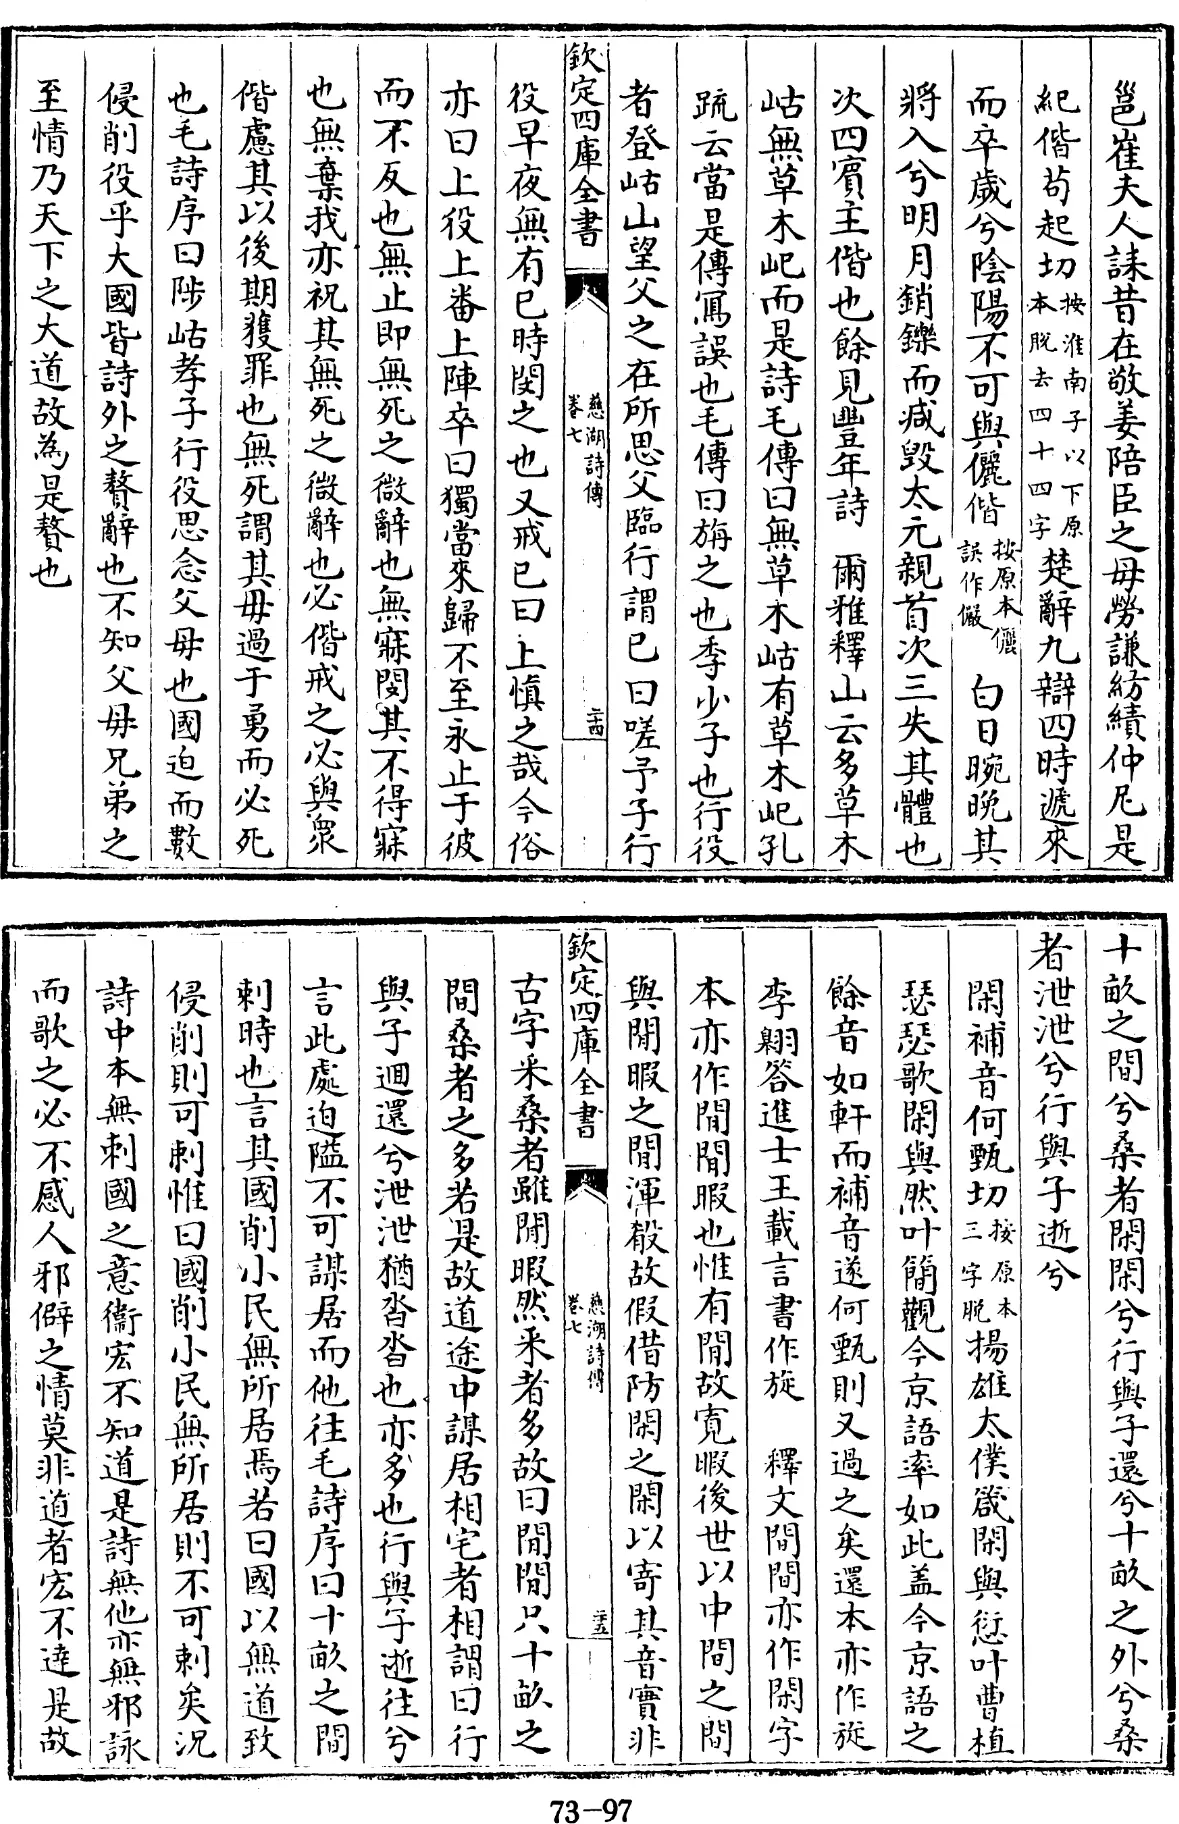 邕崔夫人誄昔在敬姜陪臣之母勞謙紡績仲尼是
紀偕茍起切按淮南子以下原本脫去四十四字楚辭九辯四時遞來
而卒歲兮陰陽不可與儷偕按原本儷誤作儼白日晼晚其
將入兮明月銷鑠而減毀太元親首次三失其體也
次四賓主偕也餘見豐年詩 爾雅釋山云多草木
岵無草木屺而是詩毛傳曰無草木岵有草木屺孔
疏云當是傳寫誤也毛傳曰旃之也季少子也行役
者登岵山望父之在所思父臨行謂已曰嗟予子行
欽定四庫全書
慈湖詩傳
卷七
二十四
役早夜無有已時閔之也又戒已曰上慎之哉今俗
亦曰上役上番上陣卒曰獨當來歸不至永止于彼
而不反也無止即無死之微辭也無寐閔其不得寐
也無棄我亦祝其無死之微辭也必偕戒之必與衆
偕慮其以後期獲罪也無死謂其毋過于勇而必死
也毛詩序曰陟岵孝子行役思念父母也國迫而數
侵削役乎大國皆詩外之贅辭也不知父母兄弟之
至情乃天下之大道故為是贅也
十畝之間兮桑者閑閑兮行與子還兮十畝之外兮桑
者泄泄兮行與子逝兮
閑補音何甄切按原本三字脫揚雄太僕箴閑與愆叶曹植
瑟瑟歌閑與然叶簡觀今京語率如此盖今京語之
餘音如軒而補音遂何甄則又過之矣還本亦作旋
李翺答進士王載言書作旋 釋文間間亦作閑字
本亦作閒閒暇也惟有閒故寛暇後世以中間之間
與閒暇之閒渾殽故假借防閑之閑以寄其音實非
欽定四庫全書
慈湖詩傳
卷七
二十五
古字采桑者雖閒暇然采者多故曰閒閒只十畝之
間桑者之多若是故道途中謀居相宅者相謂曰行
與子迴還兮泄泄猶沓沓也亦多也行與子逝往兮
言此處迫隘不可謀居而他往毛詩序曰十畝之間
刺時也言其國削小民無所居焉若曰國以無道致
侵削則可刺惟曰國削小民無所居則不可刺矣況
詩中本無刺國之意衞宏不知道是詩無他亦無邪詠
而歌之必不感人邪僻之情莫非道者宏不達是故
73-97